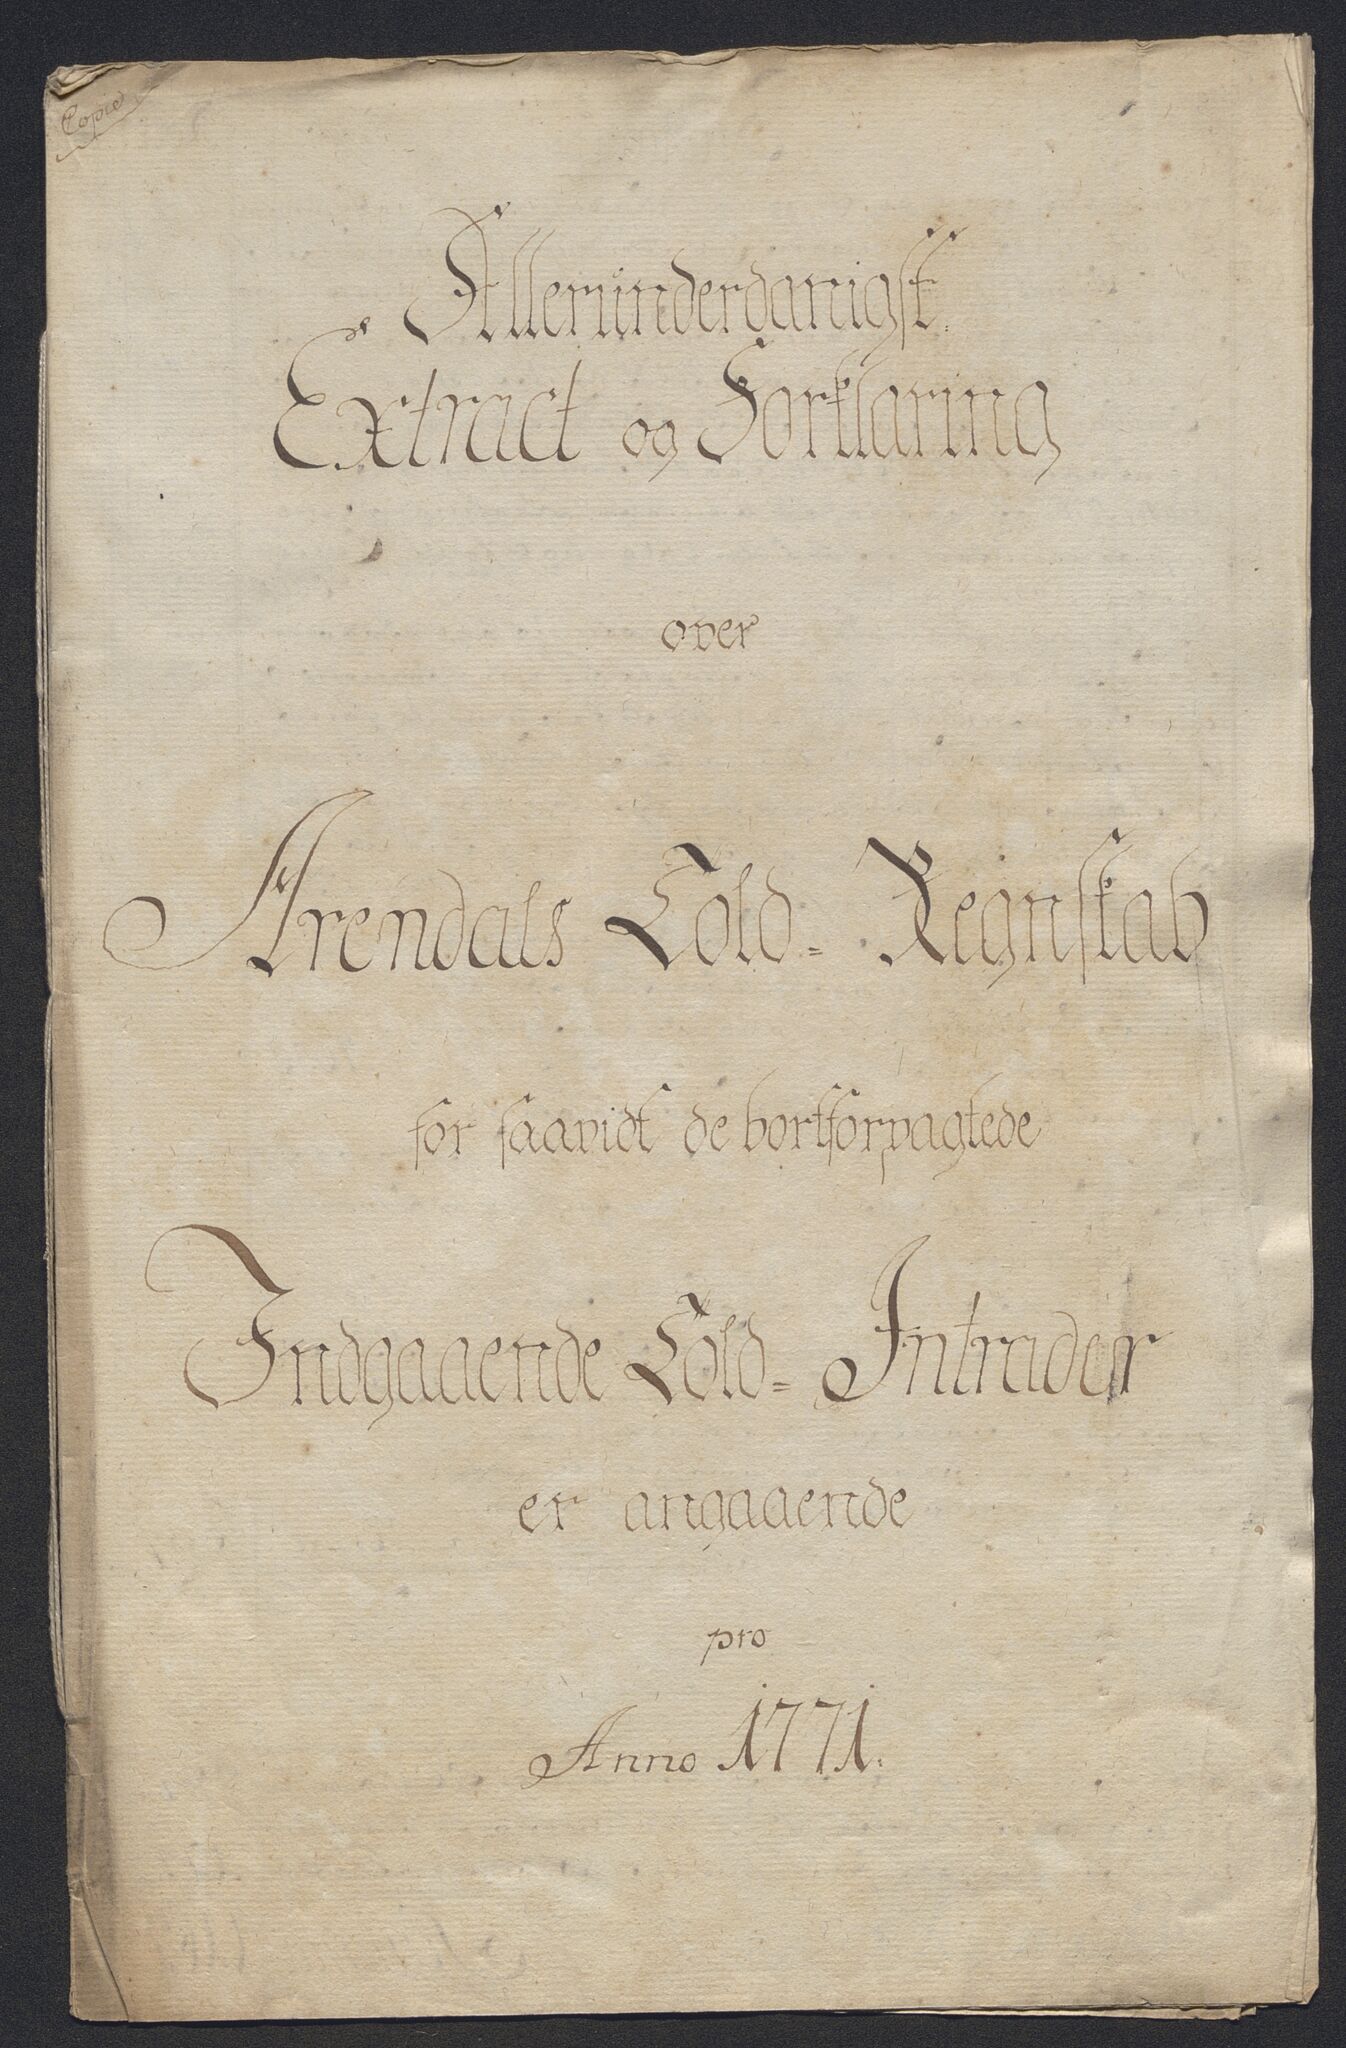 Copie
Allerunderdanigst
Extract og Forklaring
over
Arendals Told= Regnskab
for saavidt de bortforpagtede
Indgaaende Told= Intrader
er angaaende
pro
Anno 1771.